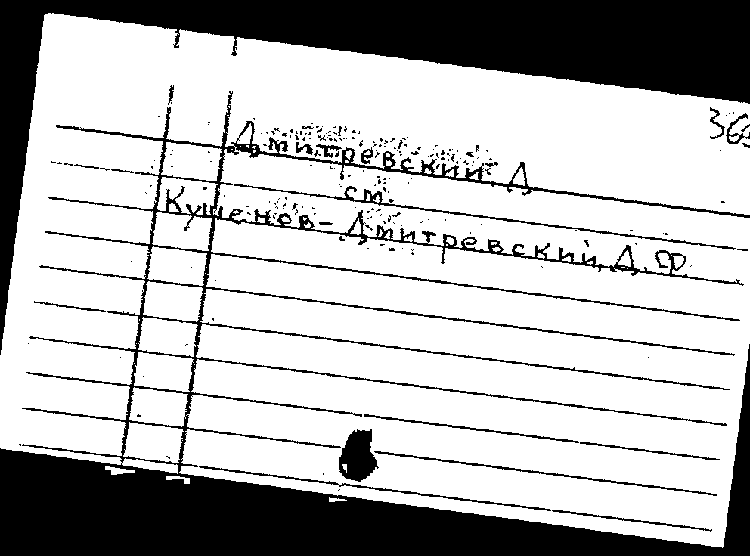 Дмитревский, Д
ст.
Кушенов-Дмитревский, Д. Ф